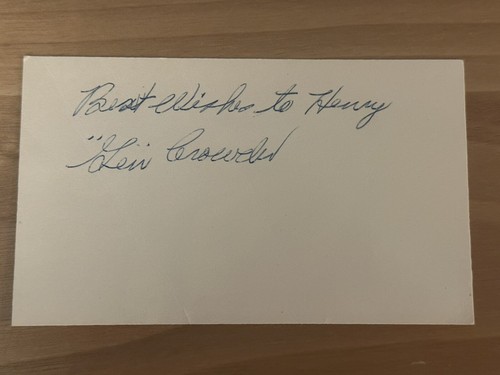 Best Wishes to Henry
"Gen" Crowder